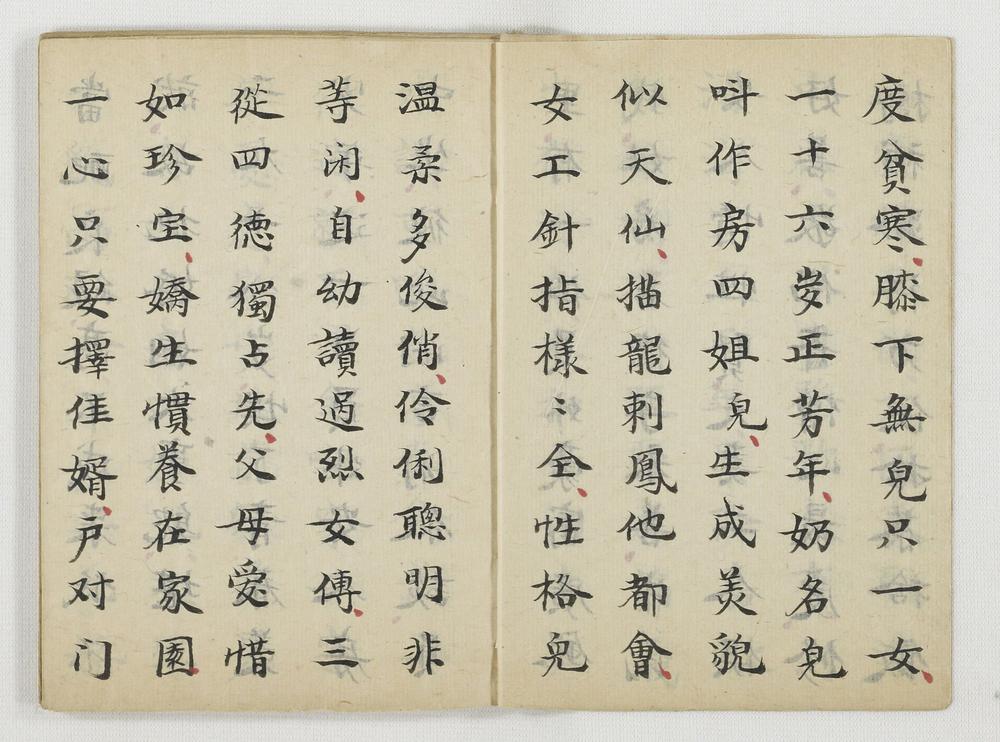 度貧寒膝下無皃只一女
一十六岁正芳年奶名皃
呌作房四姐皃生成美貌
似天仙描龍刺鳳他都會
女工針指樣〻全性格皃
温柔多俊俏伶俐聰明非
等闲自幼讀過烈女傳三
從四德獨占先父母愛惜
如珍宝嬌生慣養在家園
一心只要擇佳婿户对门